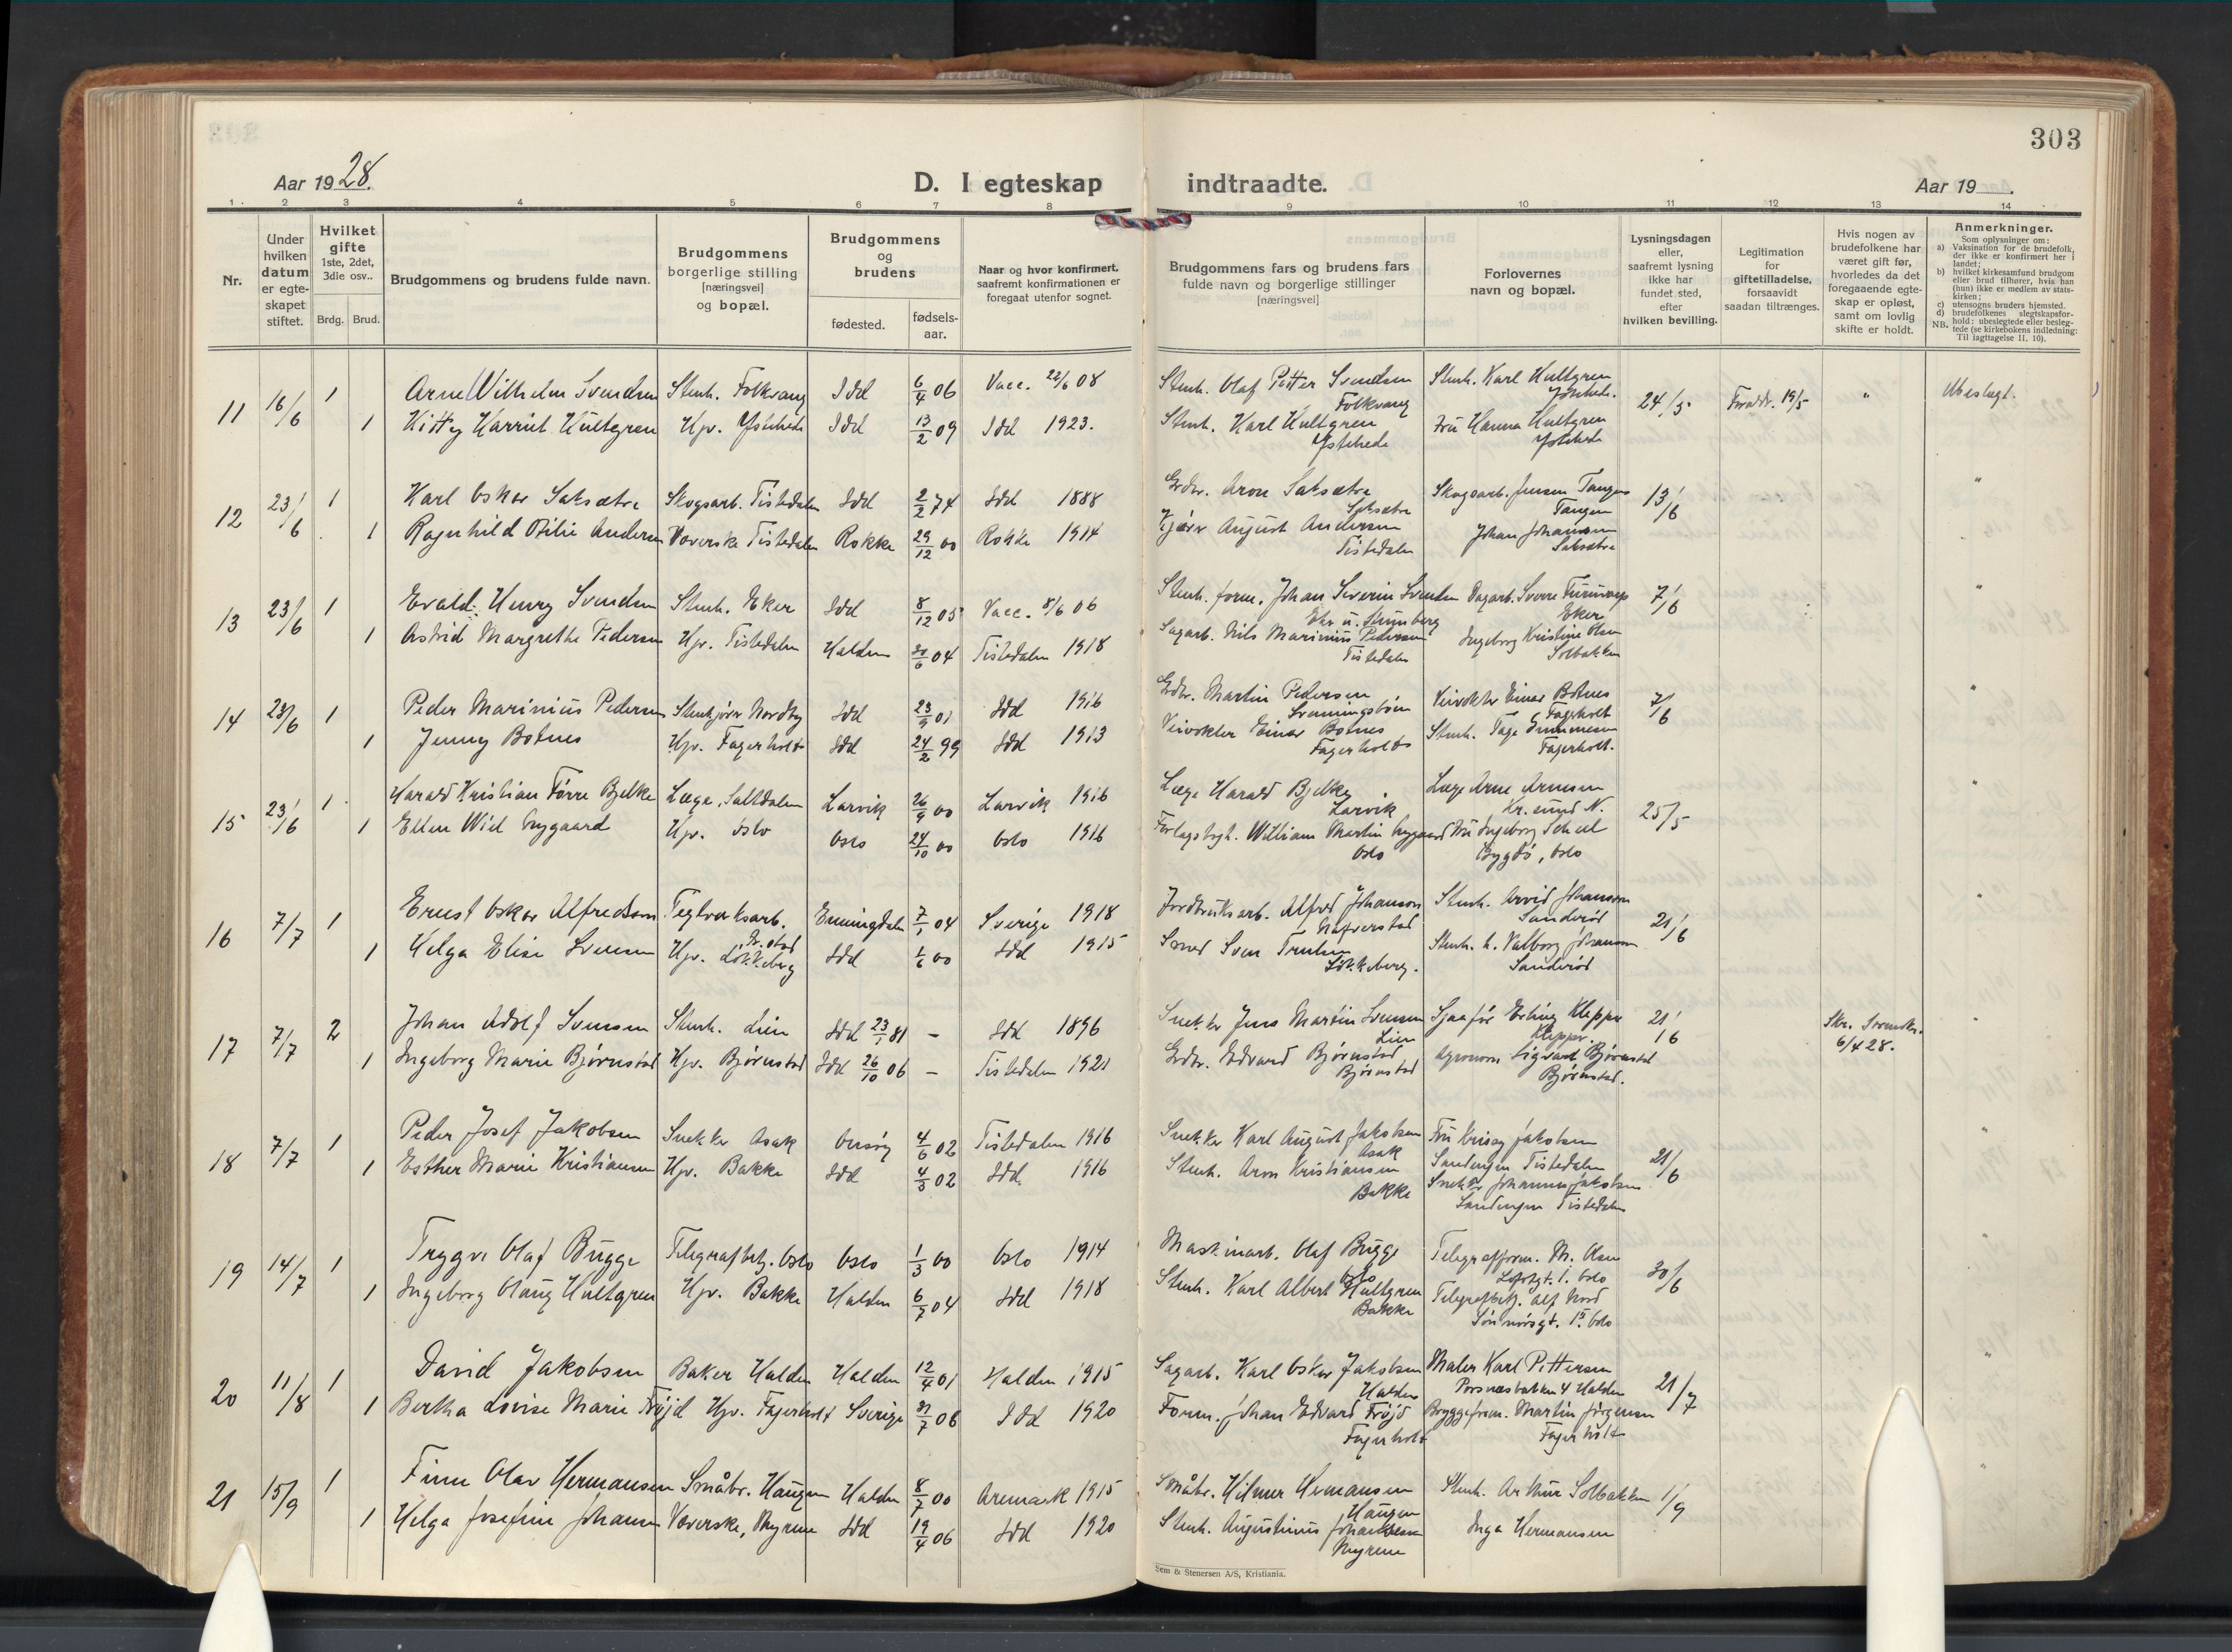 303
Aar 1928.
D. I egteskap indtraadte.
Aar 19 .
1. 2 3 4 5 6 7 8 9 10 11 12 13 14
Nr.
Under hvilken datum er egte-skapet stiftet.
Hvilket gifte 1ste, 2det, 3dle osv..
Brdg. Brud.
Brudgommens og brudens fulde navn.
Brudgommens borgerlige stilling [næringsvei] og bopæl.
Brudgommens og brudens
fødested.
fødsels-aar.
Naar og hvor konfirmert, saafremt konfirmationen er foregaat utenfor sognet.
Brudgommens fars og brudens fars fulde navn og borgerlige stillinger [næringsvei]
Forlovernes navn og bopæl.
Lysningsdagen eller, saafremt lysning ikke har fundet sted, efter hvilken bevilling.
Legitimation for giftetilladelse, forsaavidt saadan tiltrænges.
Hvis nogen av brudefolkene har været gift før, hvorledes da det foregaaende egte-skap er opløst, samt om lovlig skifte er holdt.
Anmerkninger.
Som oplysninger om:
a) Vaksination for de brudefolk, der ikke er konfirmert her i landet;
b) hvilket kirkesamfund brudgom eller brud tilhører, hvis han (hun) ikke er medlem av stats-kirken;
c) utensogns bruders hjemsted.
d) brudefolkenes slegtskapsfor-hold: ubeslegtede eller besleg-tede (se kirkebokens indledning: Til iagttagelse II. 10).
NB.
11 16/6 1 Arne Vilhelm Svendsen Stenh. Folkvang Idd 6/4 06 Vacc. 22/6 08 Stenh. Olaf Petter Svendsen Folkvang Stenh. Karl Hultgren Ystehede. 24/5 Foreldr. 19/5 " Ubeslegt.
1 Kitty Harriet Hultgren Hjv. Ystehede Idd 13/2 09 Idd 1923. Stenh. Karl Hultgren Ystehede Fru Hanna Hultgren Ystehede
12 23/6 1 Karl Oskar Saksætre Skogsarb. Tistedalen Idd 2/2 74 Idd 1888 Grdbr. Aron Saksætre Saksætre Skogsarb. Jensen Tangen Tangen 13/6 "
1 Ragnhild Otilie Andersen Væverske Tistedalen Rokke 29/12 00 Rokke 1914 Kjører August Andersen Tistedalen Johan Johansen Saksætre
13 23/6 1 Evald Henry Svendsen Stenh. Eker Idd 8/12 05 Vacc. 8/6 06 Stenh. form. Johan Severin Svendsen Dagarb. Sverre Eker 7/6 "
1 Astrid Margrethe Pedersen Hjv. Tistedalen Halden 30/6 04 Tistedalen 1918 Sagarb. Nils Marinius Pedersen Tistedalen Ingeborg Kristine Olsen Solbakken
14 23/6 1 Peder Marinius Pedersen Stenkjører Nordby Idd 23/9 01 Idd 1916 Grdbr. Martin Pedersen Svenningsbøen Veivokter Einar Botnes Fagerholt 7/6 "
1 Jenny Botnes Hjv. Fagerholt Idd 24/2 99 Idd 1913 Veivokter Einar Botnes Fagerholt Stenh. Tage Fagerholt.
15 23/6 1 Harald Kristian Tørre Bjelke Læge, Saltdalen Larvik 26/9 00 Larvik 1916 Læge Harald Bjelke Larvik Læge Arne Arnesen Kr.sund N. 25/5 "
1 Ellen Wiel Nygaard Hjv. Oslo Oslo 24/10 00 Oslo 1916 Forlagsbogh. William Martin Nygaard Oslo Fru Ingeborg Scheel Bygdø, Oslo
16 7/7 1 Ernest Oskar Alfredsson Teglverksarb. Fr.stad Enningdalen 7/1 04 Sverige 1918 Jordbruksarb. Alfred Johanson Stenh. Arvid Johanson Sanderød 21/6 "
1 Helga Elise Svensen Hjv. Løkkeberg Idd 1/6 00 Idd 1915 Smed Sven Løkkeberg. Stenh. h. Valborg Johanson Sanderød
17 7/7 2 Johan Adolf Svensen Stenh. Lien Idd 23/1 81 – Idd 1896 Snekker Jens Martin Svensen Lien Sjaafør Erling Klepper Klepper. 21/6 Skr. 6/4 28.
1 Ingeborg Marie Bjørnstad Hjv. Bjørnstad Idd 26/10 06 – Tistedalen 1921 Grdbr. Edvard Bjørnstad Bjørnstad Agronom Sigvart Bjørnstad Bjørnstad.
18 7/7 1 Peder Josef Jakobsen Snekker Asak Onsøy 4/6 02 Tistedalen 1916 Snekker Karl August Jakobsen Asak Fru Jakobsen Sandengen Tistedalen 21/6 "
1 Esther Marie Kristiansen Hjv. Bakke Idd 4/3 02 Idd. 1916 Stenh. Aron Kristiansen Bakke Snekker Johannes Jakobsen Sandengen Tistedalen
19 14/7 1 Trygve Olaf Bugge Telegrafbetj. Oslo Oslo 1/3 00 Oslo 1914 Maskinarb. Olaf Bugge Oslo Telegrafform. M. Olsen Oslo 30/6 "
1 Ingeborg Olaug Hultgren Hjv. Bakke Halden 6/7 04 Idd 1918 Stenh. Karl Albert Hultgren Bakke Telegrafbetj. Alf Nord Oslo
20 11/8 1 David Jakobsen Baker Halden Halden 12/4 01 Halden 1915 Sagarb. Karl Oskar Jakobsen Halden Maler Karl Pettersen Porsnesbakken 4 Halden 21/7 "
1 Bertha Lovise Marie Frøjd Hjv. Fagerholt Sverige 31/7 06 Idd 1920 Form. Johan Edvard Frøjd Fagerholt Bryggeform. Martin Jørgensen Fagerholt
21 15/9 1 Finn Olav Hermansen Småbr. Haugen Halden 8/7 00 Aremark 1915 Småbr. Hilmer Hermansen Haugen Stenh. Arthur Solbakken 1/9 "
1 Helga Josefine Johansen Væverske, Myrene Idd 19/4 06 Idd 1920 Stenh. Augustinus Johansen Myrene Inga Hermansen
Sem & Stenersen A/S, Kristiania.